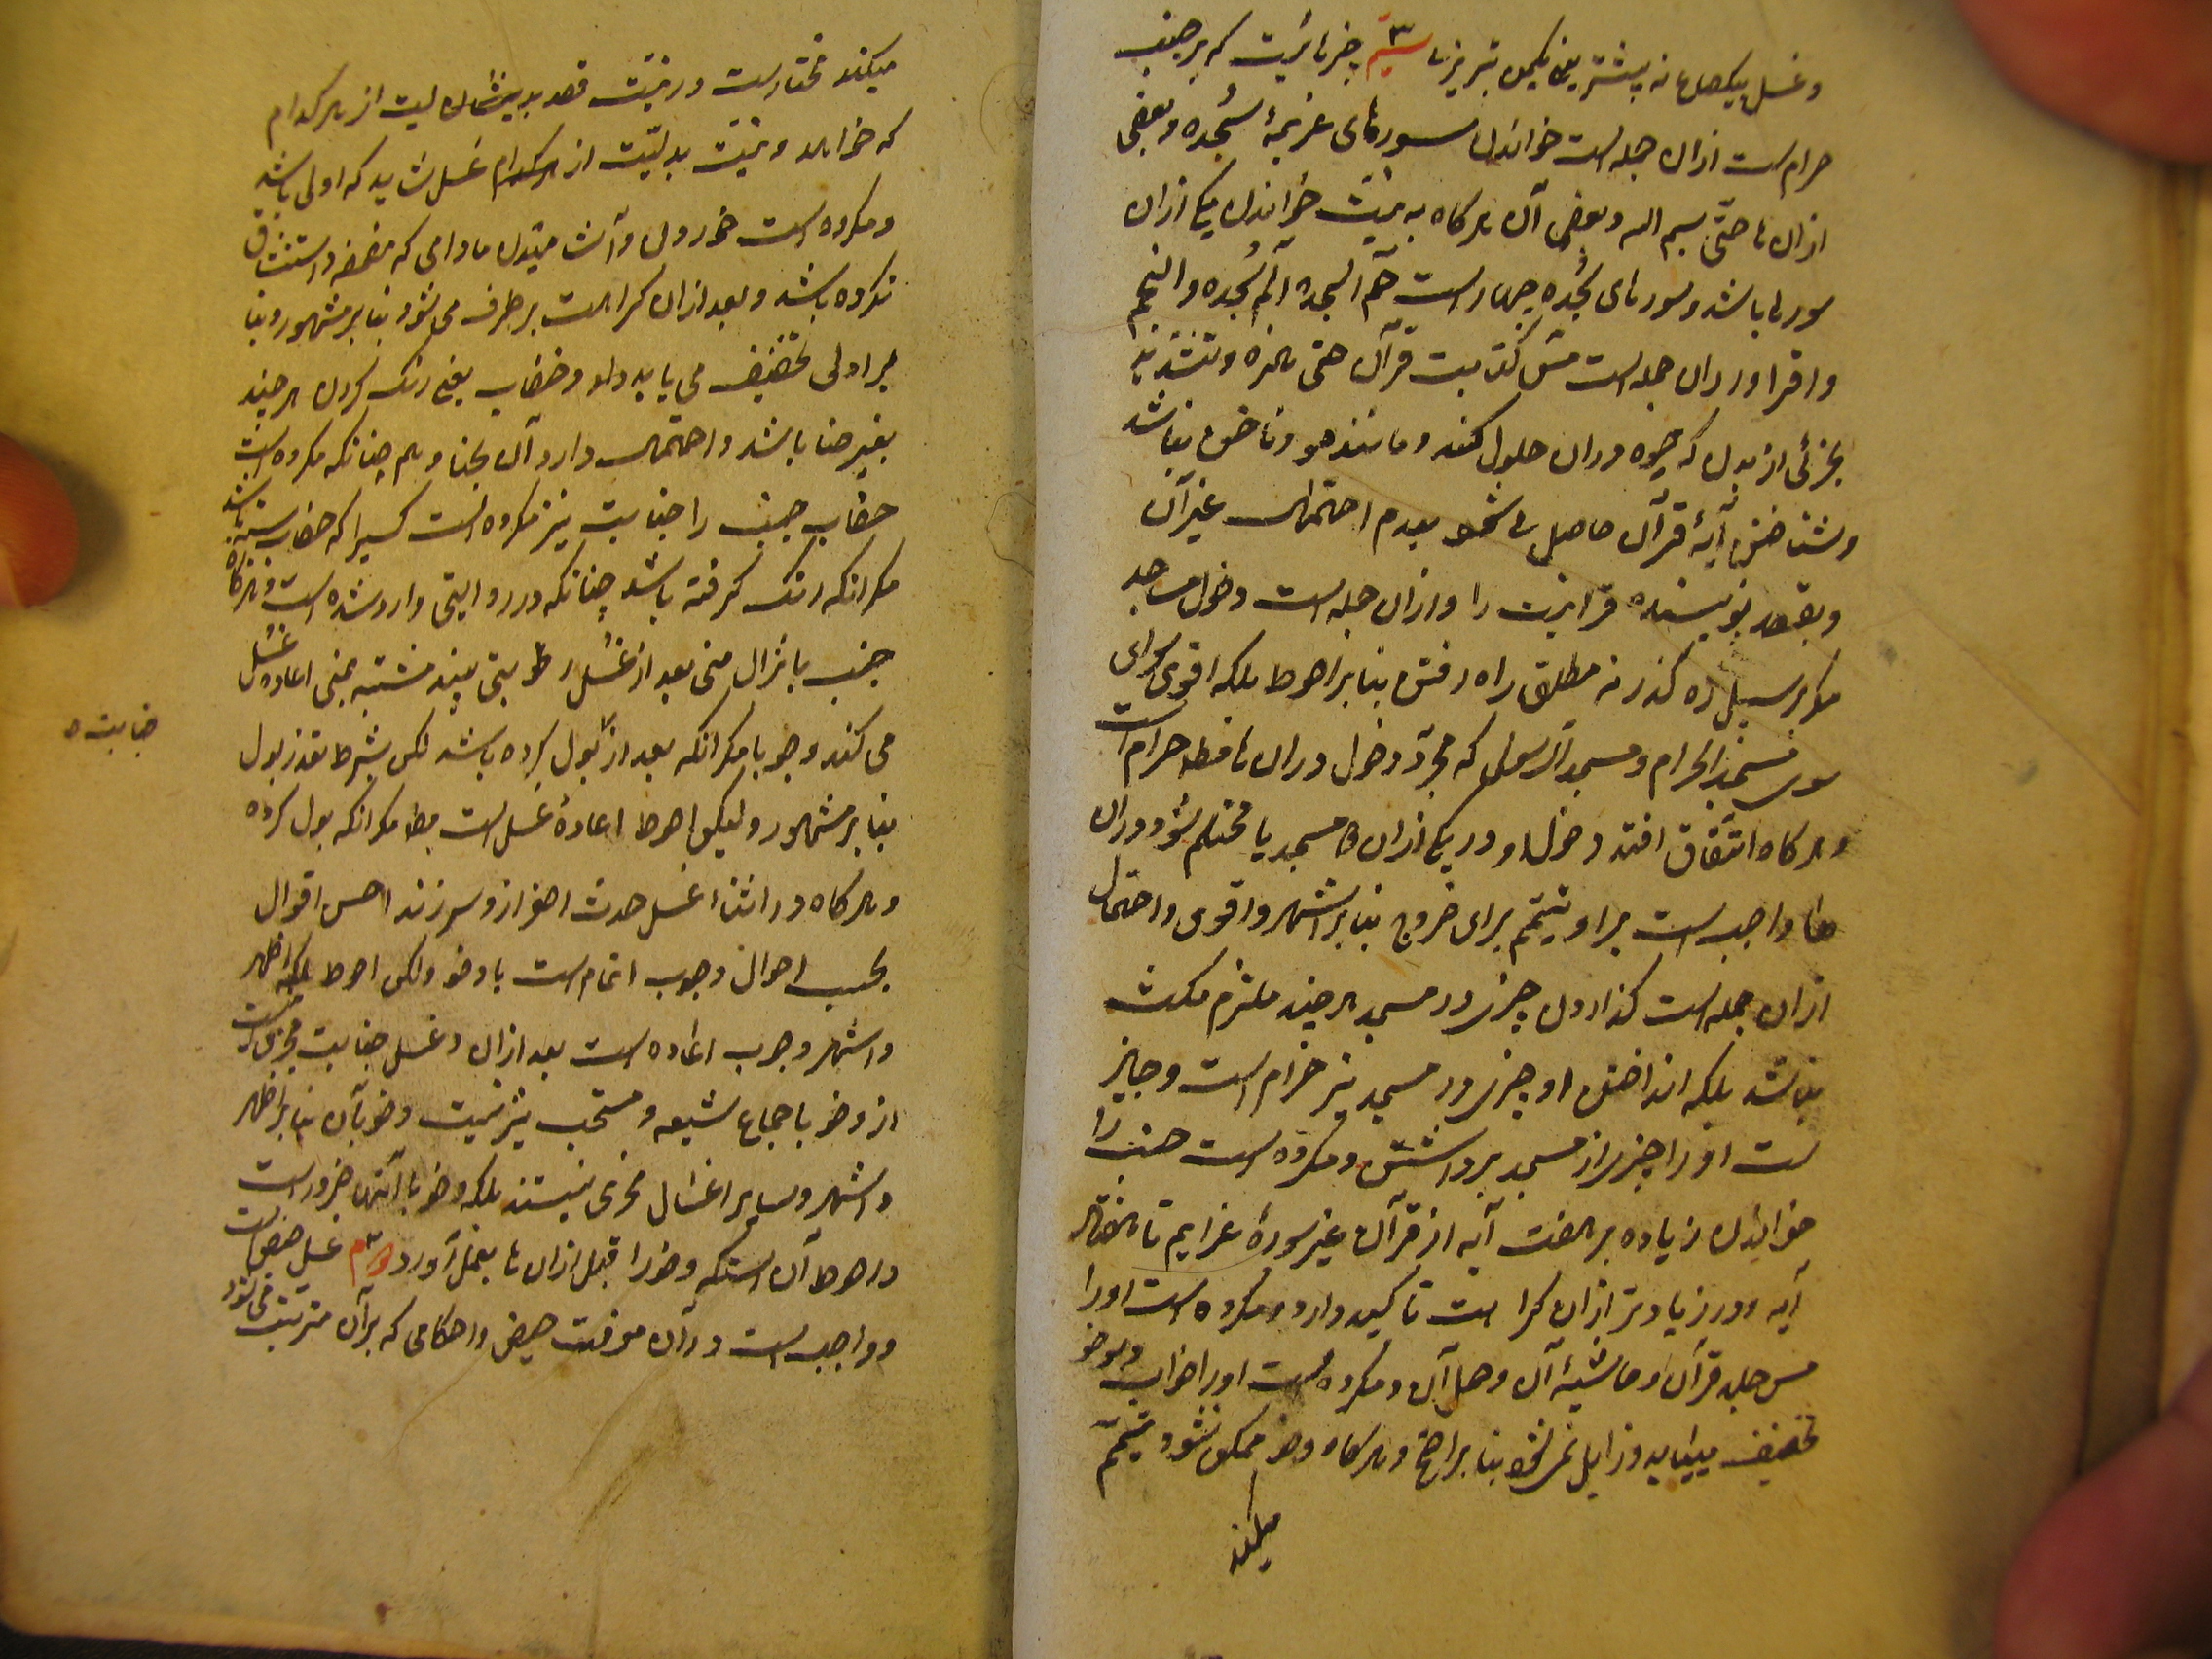 و غسل بیکصاع نه بیشتر یعنی یکمن تبریز تا سیّم چیزهائیست که بر جنب
حرام است ازان جمله است خواندن سورهای عزیمهٔ سجده و بعضی
ازان ها حتّی بسم الله و بعض آن هرکاه به نیّت خواندن یکی ازان
سورها باشد و سورهای سجده چهار است حم السجده الم سجده و النجم
و اقرا و ازان جمله است مس کتابت قرآن حتی همزه و تشدید
بجزئی از بدن که حیوة دران حلول کند و مانند مو و ناخن نباشد
و شناختن آیهٔ قرآن حاصل می شود بعدم احتمال غیر آن
و بقصد نویسنده قرانیت را و ازان جمله است دخول مساجد
مکر بر سبیل ره کذر نه مطلق راه رفتن بنا بر احوط بلکه اقوی برای
سوی مسجد الحرام و مسجد الرسول که مجرّد دخول دران ها مطلقا حرام است
و هرکاه اتّفاق افتد دخول او در یکی ازان دو مسجد یا محتلم شود دران
ها واجب است بر او تیمّم برای خروج بنا بر اشهر و اقوی و احتمال
ازان جمله است کذاردن چیزی در مسجد هر چند ملتزم مکث
نباشد بلکه انداختن او چیزی در مسجد نیز حرام است و جایز
ست او را چیزی از مسجد برداشتن و مکروه است جنب را
خواندن زیاده بر هفت آیه از قرآن غیر سورهٔ عزایم تا هفتاد
آیه و در زیادتر ازان کراهت تاکید دارد و مکروه است او را
مس جلد قرآن و حاشیهٔ آن و حمل آن و مکروه است او را خواب و بوضو
تخفیف مییابد و زایل نمی شود بنا بر اصحّ و هرکاه وضو ممکن نشود تیمّم
میکند
میکند مختار است در نیّت قصد بدلیت ان از هر کدام
که خواهد و نیّت بدلیّت از هر کدام غسل شاید که اولی باشد
و مکروه است خوردن و آشامیدن مادامی که مضمضه و استنشاق
نکرده باشد و بعد ازان کراهت بر طرف می شود بنا بر مشهور و بنا
بر اولی تخفیف می یابد و خضاب یعنی رنک کردن هر چند
بغیر حنا باشد و احتمال دارد آن بحنا و هم چنانکه مکروه است
خضاب جنب را جنابت نیز مکروه است کسیرا که خضاب بسته باشد
مکر انکه رنک کرفته باشد چنانکه در روایتی وارد شده است و هرکاه
جنب بانزال منی بعد از غسل رطوبتی بیند مشتبه بمنی اعاده غسل
جنابت ه
می کند وجوبا مکر انکه بعد از بول کرده باشد لکن بشرط تعذر بول
بنا بر مشهور و لیکن احوط اعادهٔ غسل است مطا مکر انکه بول کرده
و هرکاه در اثنا غسل حدث اصغر ازو سر زند احسن اقوال
بحسب احوال وجوب اتمام است با وضو و لکن احوط بلکه اظهر
و اشهر وجوب اعاده است بعد ازان و غسل جنابت مجزیست
از وضو باجماع شیعه و مستحب نیز نیست وضو بآن بنا بر اظهر
و اشهر و سایر اغسال مجزی نیستند بلکه وضو با آنها ضرور است
و احوط آن است که وضو را قبل ازان ها بعمل آورد دویم غسل حیض است
و واجب است دران معرفت حیض و احکامی که بر آن مترتب می شود